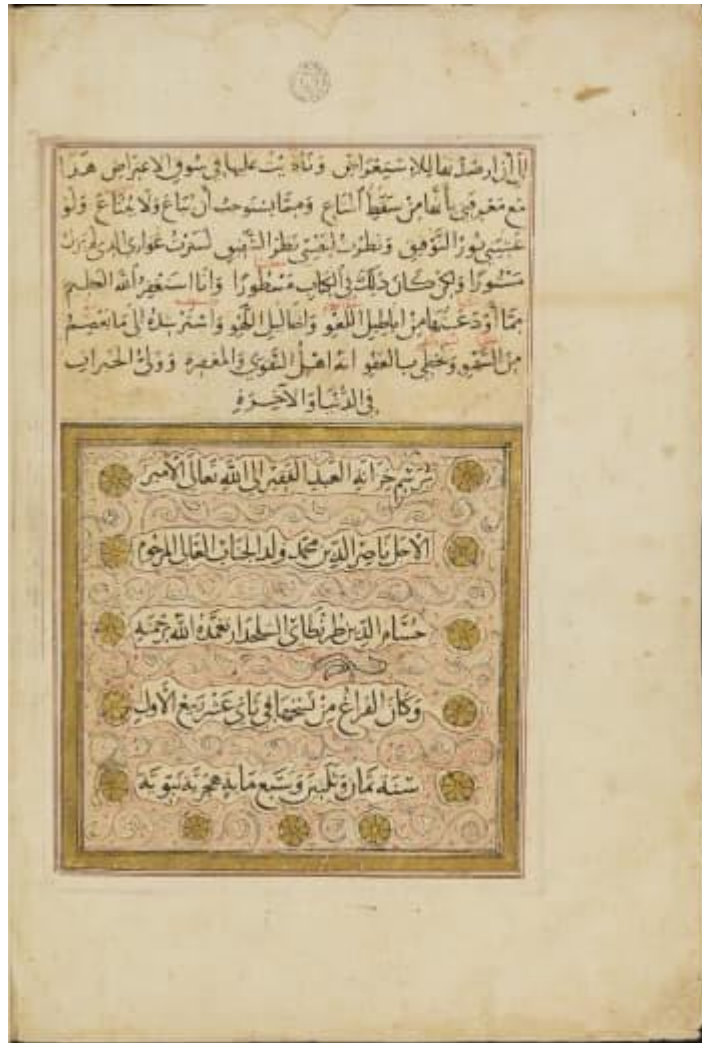 الى ان ارصدتها للاستعراض وناديت عليها في سوق الاعتراض هذا
مع معرفتي بأنها من سقط المتاع ومما يستوجب أن يباع ولا يبتاع ولو
غشيني نور التوفيق ونظرت لنفسي نظر الشفيق لسترت عواري الذي لم يزل
مستورا ولكن كان ذلك في الكتاب مسطورا وانا استغفر الله العظيم
مما أودعتها من اباطيل اللغو واضاليل اللهو واسترشده الى ما يعصم
من السهو ويحظي بالعفو انه اهل التقوى والمغفرة وولي الخيرات
في الدنيا والآخرة
برسم خزانة العبد الفقير الى الله تعالى الأمير
الاجل ناصر الدين محمد ولد الجناب العالي المرحوم
حسام الدين طرنطاي السلحدار تغمده الله برحمته
وكان الفراغ من نسخها في ثاني عشر ربيع الأول
سنة ثمان وثلثين وسبع ماية هجرية نبوية